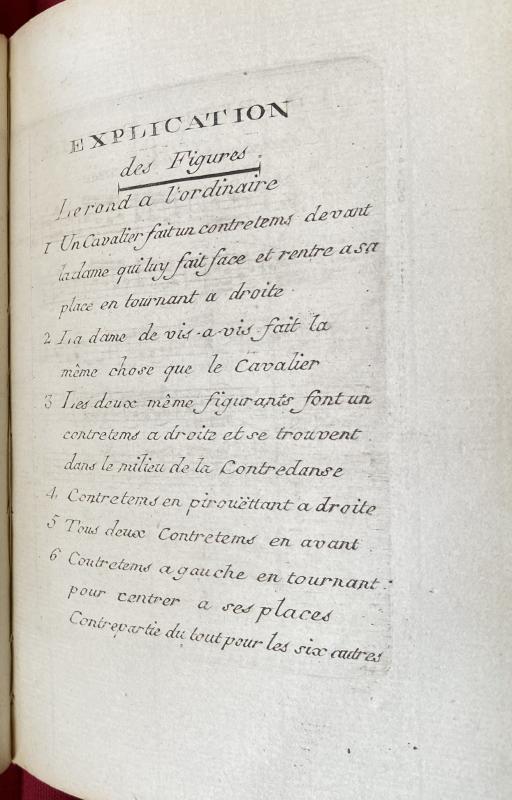 EXPLICATION
des Figures.
Le rond a l'ordinaire
1 Un Cavalier fait un contretems devant
la dame qui luy fait face et rentre a sa
place en tournant a droite.
2 La dame de vis-a-vis fait la
même chose que le Cavalier
3 Les deux même figurants font un
contretems a droite et se trouvent
dans le milieu de la Contredanse
4. Contretems en pirouëttant a droite
5 Tous deux Contretems en avant
6 Contretems a gauche en tournant
pour rentrer a ses places
Contrepartie du tout pour les six autres